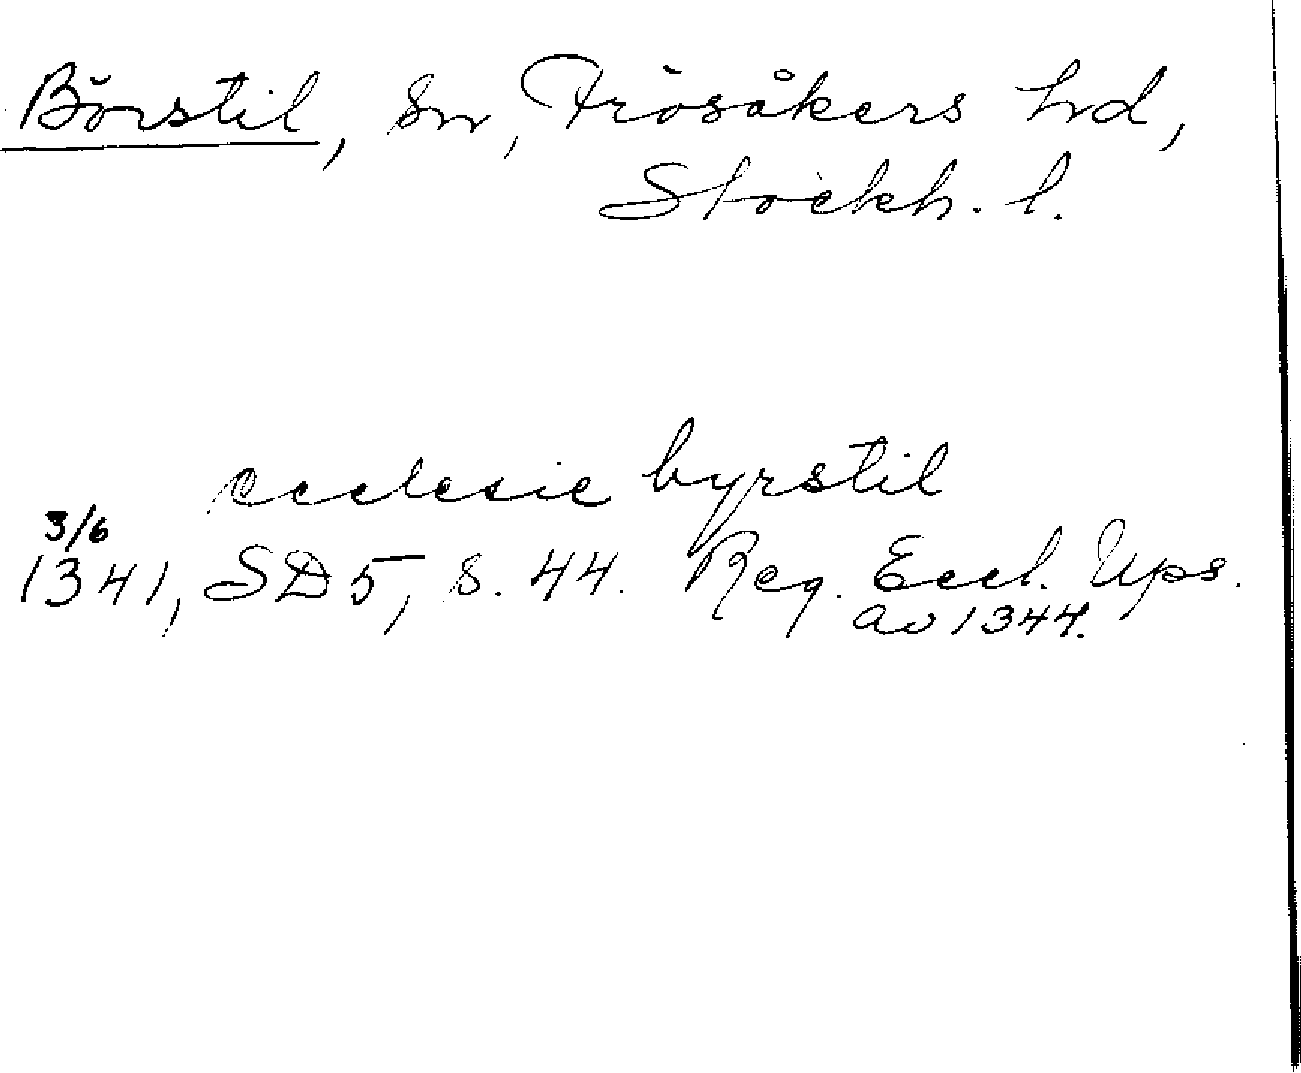 Börstil, sn, Frösåkers hd,
Stockh. l.
ecclesie byrstil
3/6
1341, SD5, s. 44. Reg. Eccl. Ups.
av 1344.